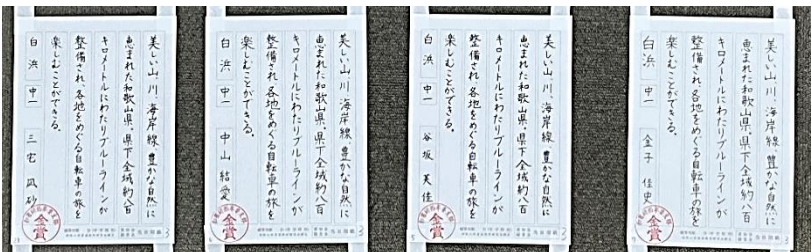 美しい山、川、海岸線、豊かな自然に
恵まれた和歌山県。県下全域約八百
キロメートルにわたりブルーラインが
整備され、各地をめぐる自転車の旅を
楽しむことができる。
白浜 中一 三宅 凪砂
金賞
美しい山、川、海岸線、豊かな自然に
恵まれた和歌山県。県下全域約八百
キロメートルにわたりブルーラインが
整備され、各地をめぐる自転車の旅を
楽しむことができる。
白浜 中一 中山 結愛
金賞
美しい山、川、海岸線、豊かな自然に
恵まれた和歌山県。県下全域約八百
キロメートルにわたりブルーラインが
整備され、各地をめぐる自転車の旅を
楽しむことができる。
白浜 中一 谷坂 美佳
金賞
美しい山、川、海岸線、豊かな自然に
恵まれた和歌山県。県下全域約八百
キロメートルにわたりブルーラインが
整備され、各地をめぐる自転車の旅を
楽しむことができる。
白浜 中一 金子 佳史
金賞